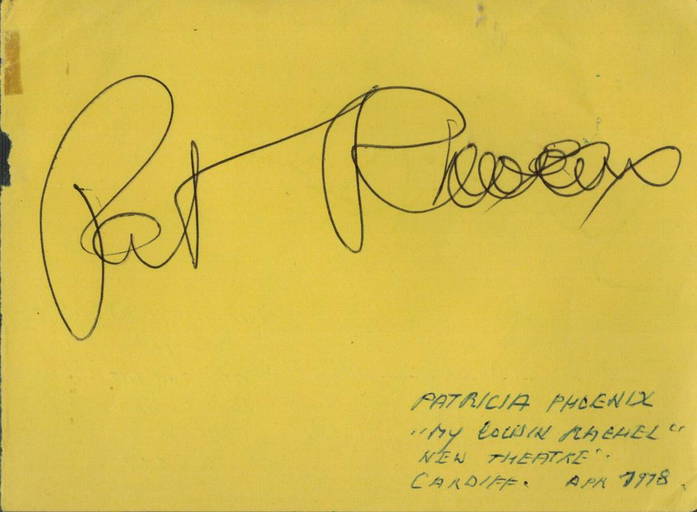 Pat Phoenix
PATRICIA PHOENIX
"MY COUSIN RACHEL"
NEW THEATRE".
CARDIFF. APR 1978.